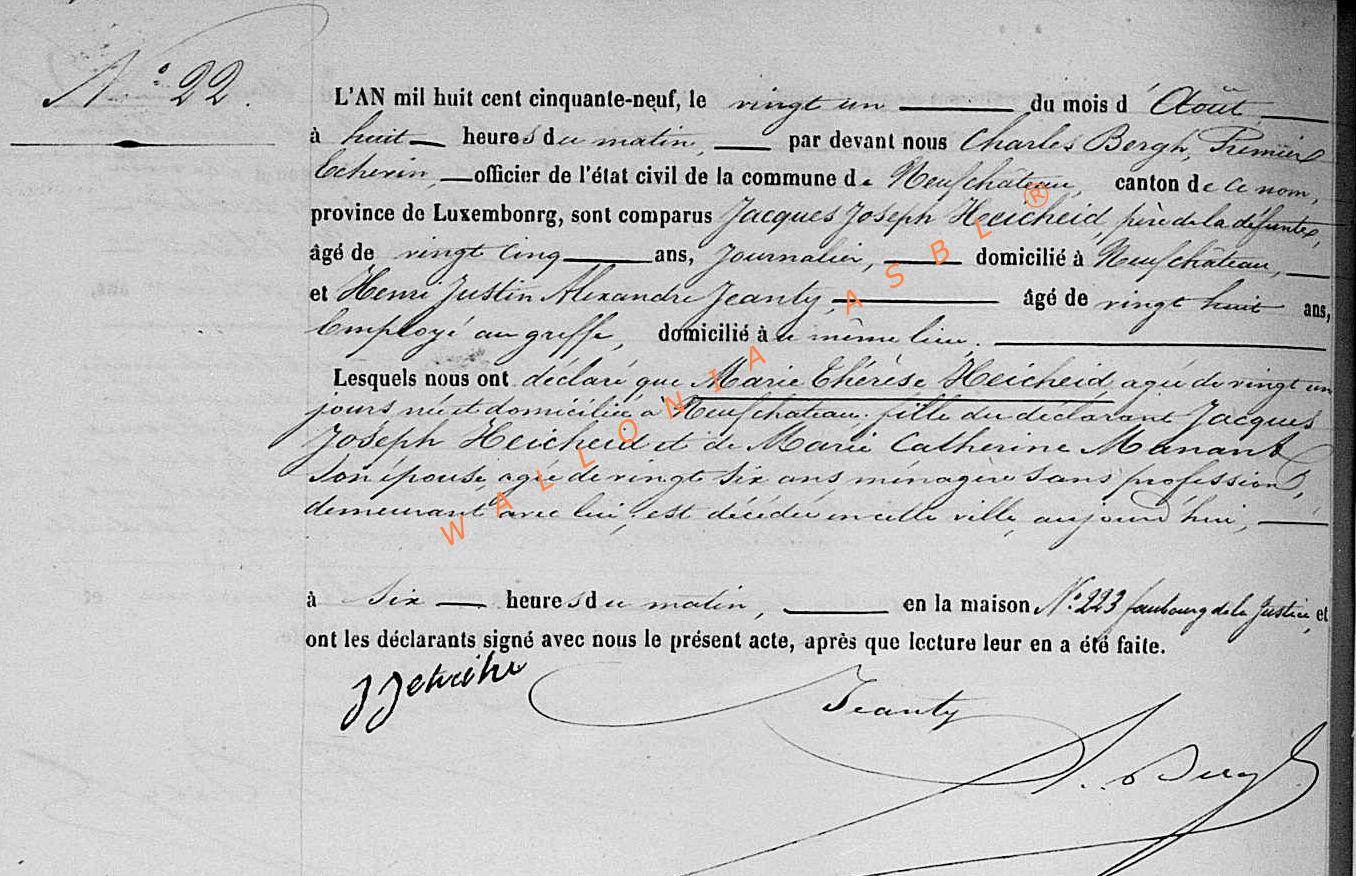 N° 22.
L'AN mil huit cent cinquante-neuf, le vingt un du mois d'Août,
à huit heures du matin, par devant nous Charles Bergh, Premier
Echevin, officier de l'état civil de la commune de Neufchâteau, canton de ce nom,
province de Luxembonrg, sont comparus Jacques Joseph Heicheid, père de la défunte,
âgé de vingt cinq ans, Journalier, domicilié à Neufchâteau,
et Henri Justin Alexandre Jeanty, âgé de vingt huit ans,
Employé au greffe, domicilié à u même lieu.
Lesquels nous ont déclaré que Marie Thérèse Heicheid agée de vingt un
jours née et domiciliée à Neufchateau, fille du déclarant Jacques
Joseph Heicheid et de Marie Catherine Manant
son épouse, agée de vingt six ans ménagère sans profession,
demeurant avec lui, est décédée en cette ville, aujourd'hui,
à six heures du matin, en la maison N° 223 faubourg de la Justice, et
ont les déclarants signé avec nous le présent acte, après que lecture leur en a été faite.
Jeanty
Bergh
WALLONIA ASBL ®